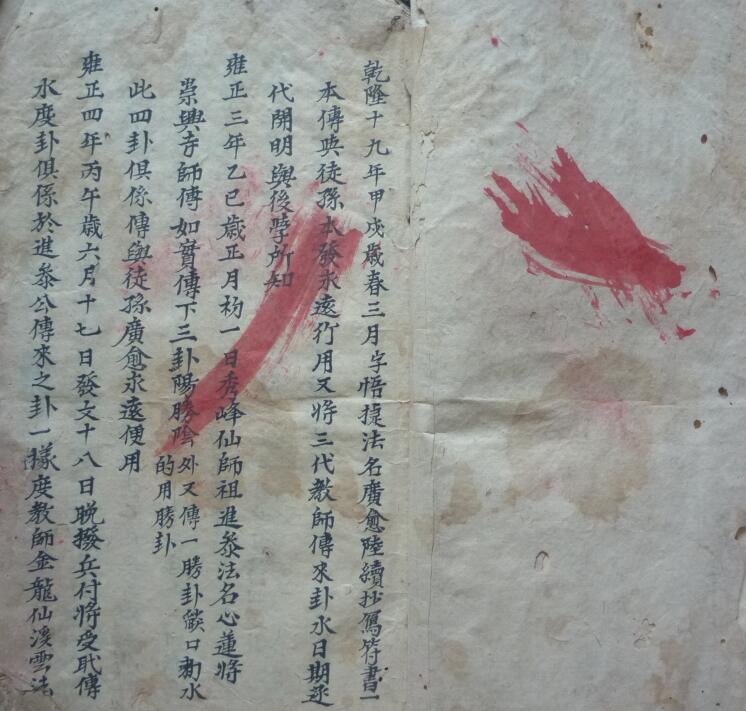 乾隆十九年甲戌歲春三月字悟提法名廣愈陸續抄寫符書一
本傳與徒孫本發永遠行用又將三代教師傳來卦水日期逐
代開明與後學所知
雍正三年乙巳歲正月初一日秀峰仙師祖進叅法名心蓮將
崇興寺師傳如實傳下三卦陽勝陰外又傳一勝卦口勅水
的用勝卦
此四卦俱係傳與徒孫廣愈永遠便用
雍正四年丙午歲六月十七日發文十八日晚撥兵付將受戒傳
水度卦俱係於進叅公傳來之卦一樣度教師金龍仙溪雲法